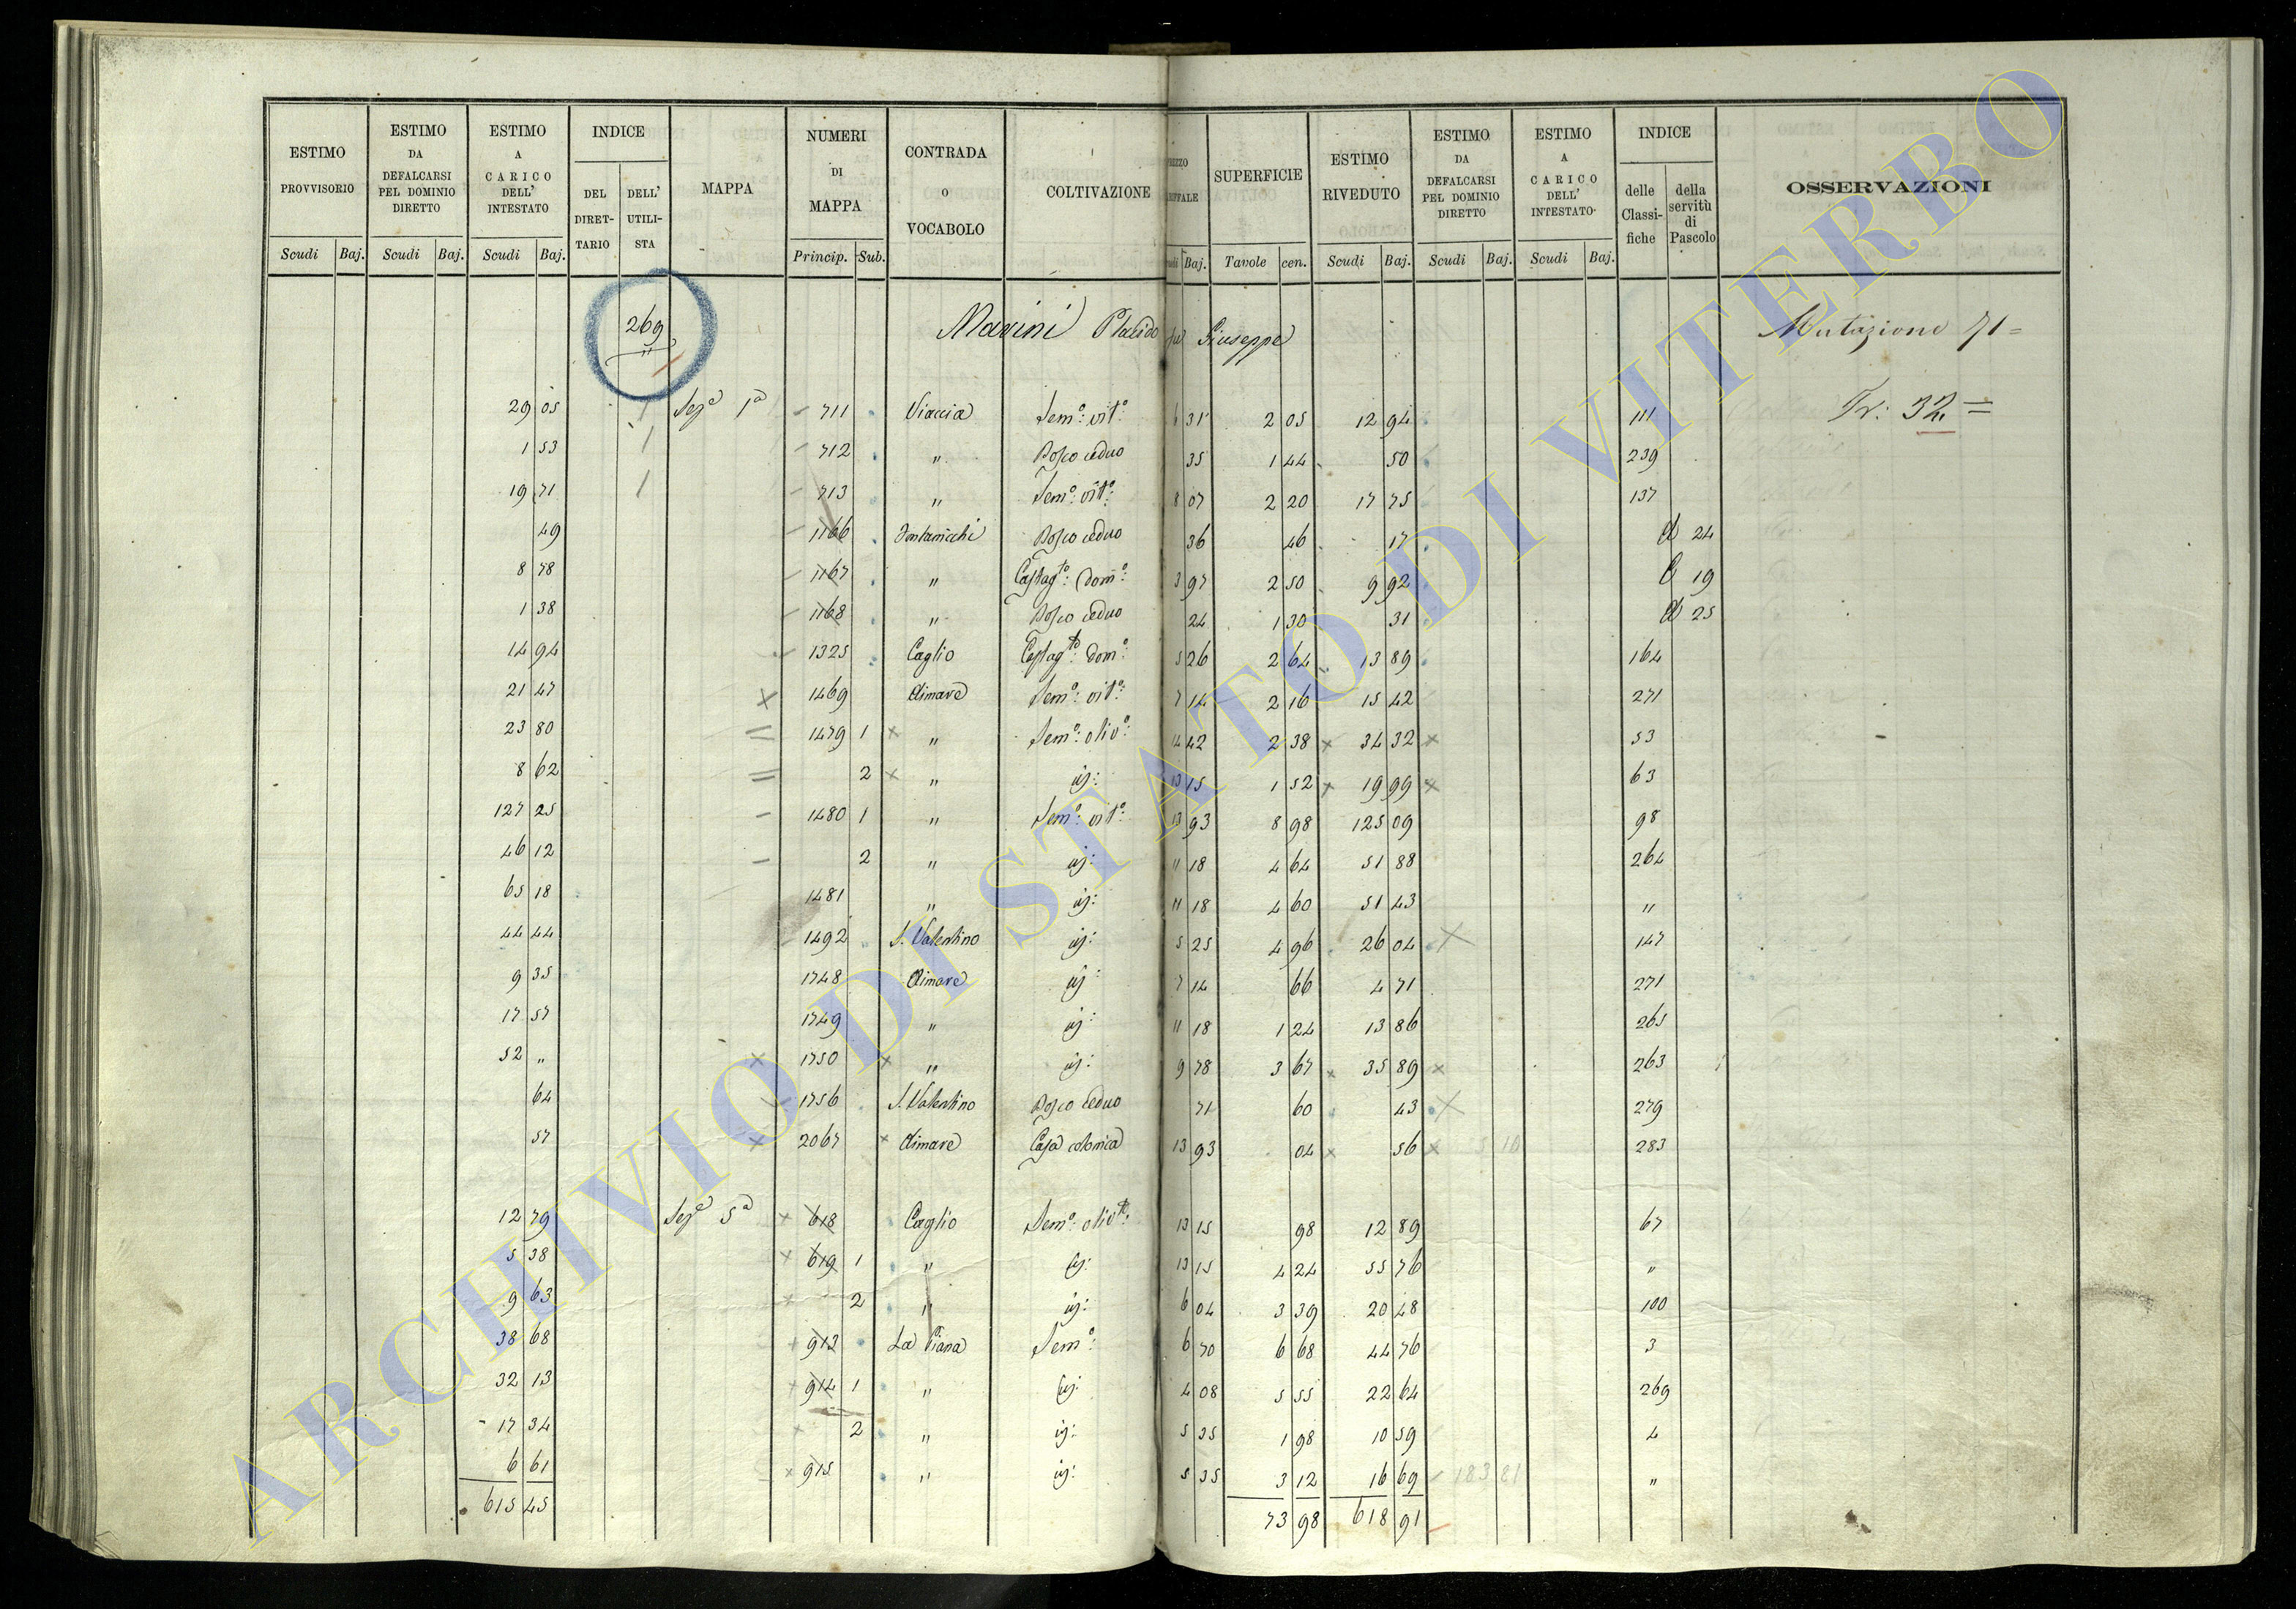 ESTIMO PROVVISORIO | ESTIMO DA DEFALCARSI PEL DOMINIO DIRETTO | ESTIMO A CARICO DELL' INTESTATO | INDICE | MAPPA | NUMERI DI MAPPA | CONTRADA O VOCABOLO | COLTIVAZIONE | SUPERFICIE | ESTIMO RIVEDUTO | ESTIMO DA DEFALCARSI PEL DOMINIO DIRETTO | ESTIMO A CARICO DELL' INTESTATO | INDICE | OSSERVAZIONI
DEL DIRETTARIO | DELL' UTILISTA | delle Classifiche | della servitù di Pascolo
Scudi | Baj. | Scudi | Baj. | Scudi | Baj. | Princip. | Sub. | Baj. | Tavole | cen. | Scudi | Baj. | Scudi | Baj. | Scudi | Baj.
269 Marini Placido fu Giuseppe Mutazione 71 =
Tr: 32 =
29 05 Sezᵉ 1ᵃ 711 Viaccia Semᵒ: vitᵒ: 6 31 2 05 12 94 111
1 53 712 " Bosco ceduo 35 1 44 50 239
19 71 713 " Semᵒ: vitᵒ: 8 07 2 20 17 75 137
49 1166 Bosco ceduo 36 46 17 24
8 78 1167 " Castagᵗᵒ: Domᵒ: 3 97 2 50 9 92 19
1 38 1168 " Bosco ceduo 24 1 30 31 25
14 94 1325 Caglio Castagᵗᵒ: Domᵒ: 5 26 2 64 13 89 164
21 47 1469 Aimare Semᵒ: vitᵒ: 7 14 2 16 15 42 271
23 80 1479 1 " Semᵒ: olivᵒ: 14 42 2 38 34 32 53
8 62 2 " id: 13 15 1 52 19 99 63
127 25 1480 1 " Semᵒ: vitᵒ: 13 93 8 98 125 09 98
46 12 2 " id: 11 18 4 64 51 88 264
65 18 1481 " id: 11 18 4 60 51 43 "
44 44 1492 S. Valentino id: 5 25 4 96 26 04 147
9 35 1748 Aimare id: 7 14 66 4 71 271
17 57 1749 " id: 11 18 1 24 13 86 265
52 " 1750 " id: 9 78 3 67 35 89 263
64 1756 S. Valentino Bosco ceduo 71 60 43 279
57 2067 Aimare Casa colonica 13 93 04 56 283
12 79 Sezᵉ 5ᵃ 618 Caglio Semᵒ: olivᵗᵒ: 13 15 98 12 89 67
5 38 619 1 " id: 13 15 4 24 55 76 "
9 63 2 " id: 6 04 3 39 20 48 100
38 68 913 La Piana Semᵒ: 6 70 6 68 44 76 3
32 13 914 1 " id: 4 08 5 55 22 64 269
17 34 2 " id: 5 35 1 98 10 59 4
6 61 915 " id: 5 35 3 12 16 69 183 81 "
615 45 73 98 618 91
ARCHIVIO DI STATO DI VITERBO